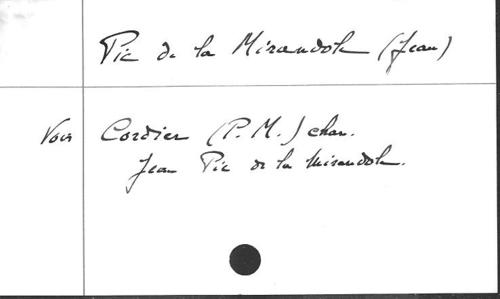 Pic de la Mirandole (Jean)
Voir Cordier (P. M.) chan.
Jean Pic de la Mirandole.